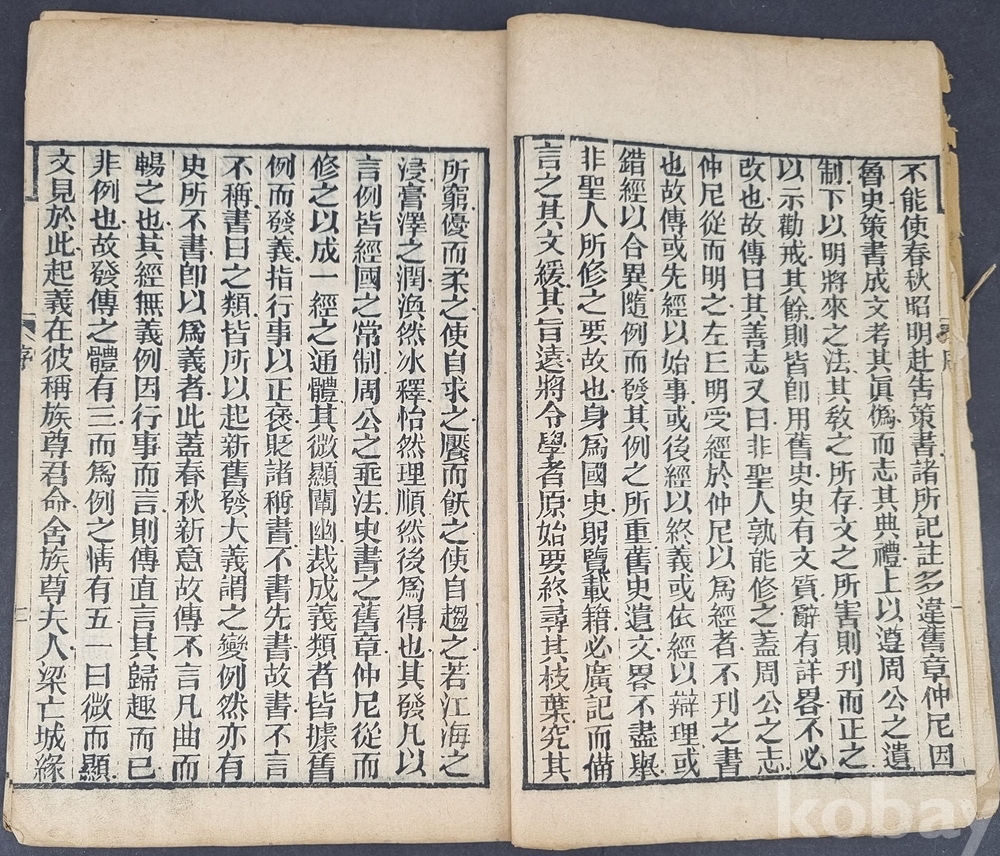 不能使春秋昭明赴告策書諸所記註多違舊章仲尼因
魯史策書成文考其眞僞而志其典禮上以遵周公之遺
制下以明將來之法其敎之所存文之所害則刊而正之
以示勸戒其餘則皆卽用舊史史有文質辭有詳畧不必
改也故傳曰其善志又曰非聖人孰能修之蓋周公之志
仲尼從而明之左丘明受經於仲尼以爲經者不刊之書
也故傳或先經以始事或後經以終義或依經以辯理或
錯經以合異隨例而發其例之所重舊史遺文畧不盡舉
非聖人所修之要故也身爲國史躬覽載籍必廣記而備
言之其文緩其旨遠將令學者原始要終尋其枝葉究其
所窮優而柔之使自求之饜而飫之使自趨之若江海之
浸膏澤之潤渙然冰釋怡然理順然後爲得也其發凡以
言例皆經國之常制周公之垂法史書之舊章仲尼從而
修之以成一經之通體其微顯闡幽裁成義類者皆據舊
例而發義指行事以正褒貶諸稱書不書先書故書不言
不稱書曰之類皆所以起新舊發大義謂之變例然亦有
史所不書卽以爲義者此蓋春秋新意故傳不言凡曲而
暢之也其經無義例因行事而言則傳直言其歸趣而已
非例也故發傳之體有三而爲例之情有五一曰微而顯
文見於此起義在彼稱族尊君命舍族尊夫人梁亡城緣
序
二
kobay